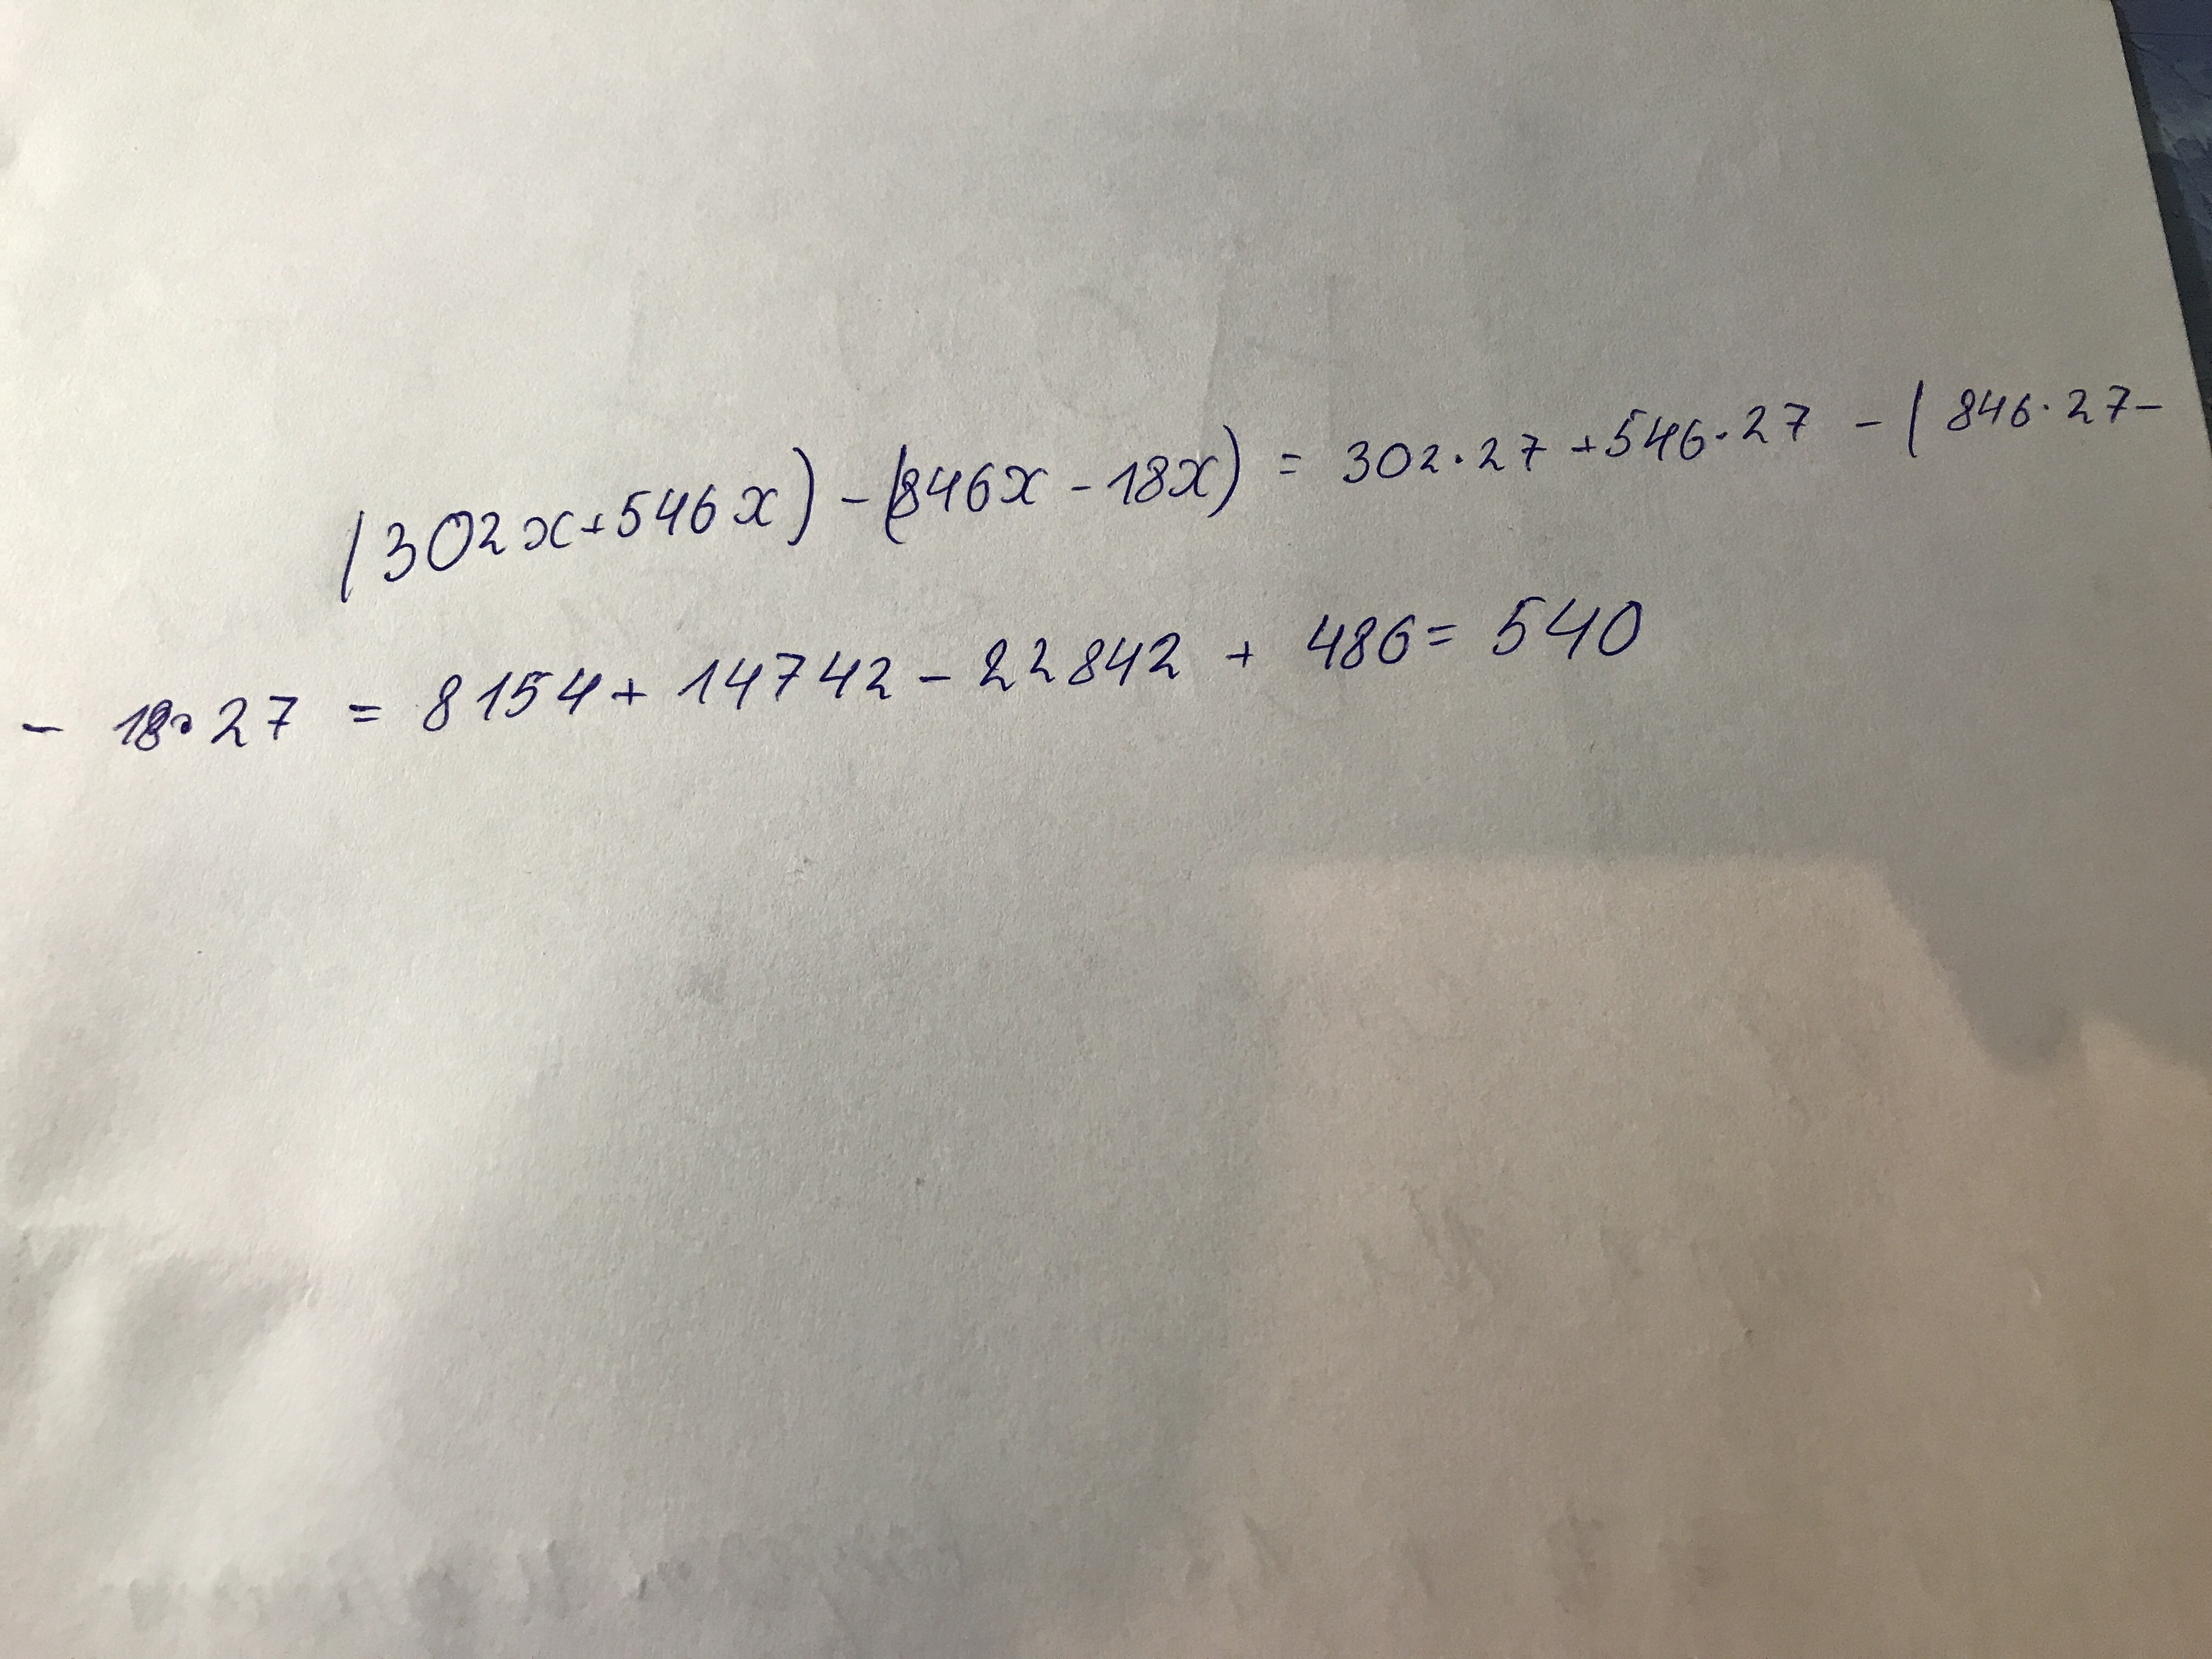 (302x+546x)-(846x-18x) = 302·27+546·27 - (846·27-
- 18·27 = 8154+14742-22842 + 486= 540